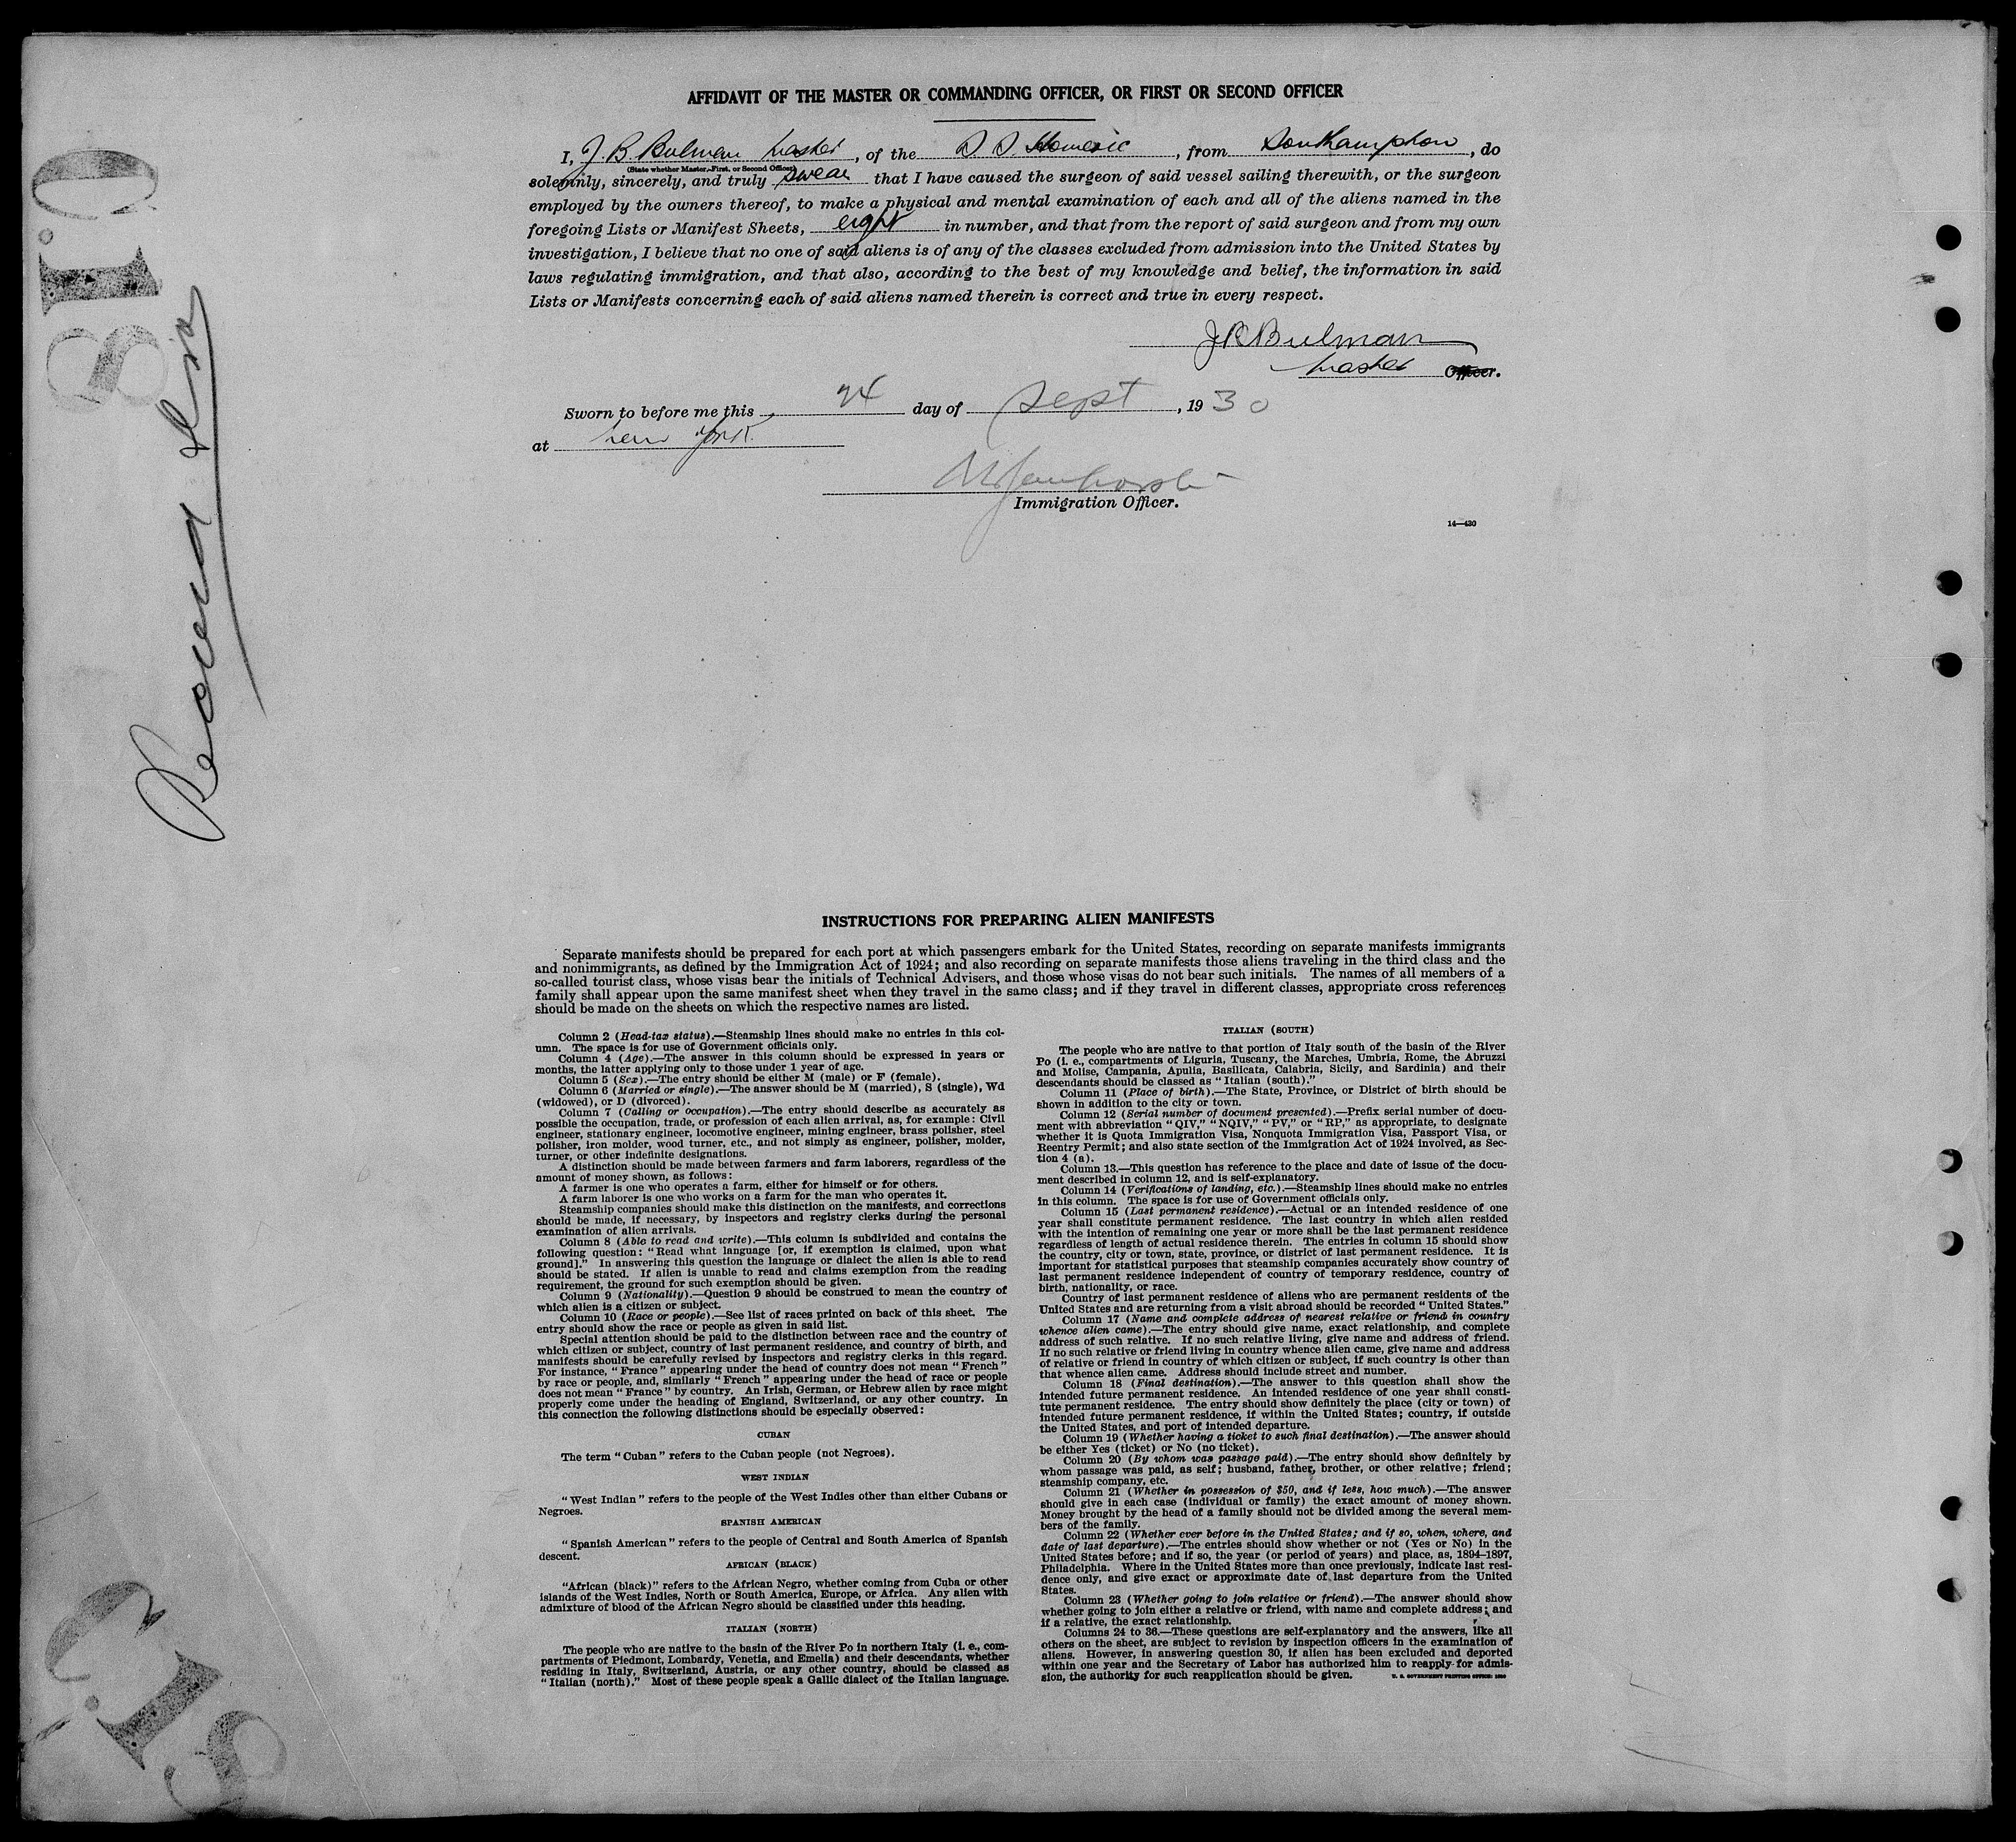 AFFIDAVIT OF THE MASTER OR COMMANDING OFFICER, OR FIRST OR SECOND OFFICER
I, J. B. Bulman Master, of the S S. Homeric, from Southampton, do
(State whether Master, First, or Second Officer)
solemnly, sincerely, and truly swear that I have caused the surgeon of said vessel sailing therewith, or the surgeon
employed by the owners thereof, to make a physical and mental examination of each and all of the aliens named in the
foregoing Lists or Manifest Sheets, eight in number, and that from the report of said surgeon and from my own
investigation, I believe that no one of said aliens is of any of the classes excluded from admission into the United States by
laws regulating immigration, and that also, according to the best of my knowledge and belief, the information in said
Lists or Manifests concerning each of said aliens named therein is correct and true in every respect.
J B Bulman
Master Officer.
Sworn to before me this 24 day of Sept, 1930
at New York
Immigration Officer.
14—430
810
Second
C.18
INSTRUCTIONS FOR PREPARING ALIEN MANIFESTS
Separate manifests should be prepared for each port at which passengers embark for the United States, recording on separate manifests immigrants
and nonimmigrants, as defined by the Immigration Act of 1924; and also recording on separate manifests those aliens traveling in the third class and the
so-called tourist class, whose visas bear the initials of Technical Advisers, and those whose visas do not bear such initials. The names of all members of a
family shall appear upon the same manifest sheet when they travel in the same class; and if they travel in different classes, appropriate cross references
should be made on the sheets on which the respective names are listed.
Column 2 (Head-tax status).—Steamship lines should make no entries in this col-
umn. The space is for use of Government officials only.
Column 4 (Age).—The answer in this column should be expressed in years or
months, the latter applying only to those under 1 year of age.
Column 5 (Sex).—The entry should be either M (male) or F (female).
Column 6 (Married or single).—The answer should be M (married), S (single), Wd
(widowed), or D (divorced).
Column 7 (Calling or occupation).—The entry should describe as accurately as
possible the occupation, trade, or profession of each alien arrival, as, for example: Civil
engineer, stationary engineer, locomotive engineer, mining engineer, brass polisher, steel
polisher, iron molder, wood turner, etc., and not simply as engineer, polisher, molder,
turner, or other indefinite designations.
A distinction should be made between farmers and farm laborers, regardless of the
amount of money shown, as follows:
A farmer is one who operates a farm, either for himself or for others.
A farm laborer is one who works on a farm for the man who operates it.
Steamship companies should make this distinction on the manifests, and corrections
should be made, if necessary, by inspectors and registry clerks during the personal
examination of alien arrivals.
Column 8 (Able to read and write).—This column is subdivided and contains the
following question: "Read what language [or, if exemption is claimed, upon what
ground]." In answering this question the language or dialect the alien is able to read
should be stated. If alien is unable to read and claims exemption from the reading
requirement, the ground for such exemption should be given.
Column 9 (Nationality).—Question 9 should be construed to mean the country of
which alien is a citizen or subject.
Column 10 (Race or people).—See list of races printed on back of this sheet. The
entry should show the race or people as given in said list.
Special attention should be paid to the distinction between race and the country of
which citizen or subject, country of last permanent residence, and country of birth, and
manifests should be carefully revised by inspectors and registry clerks in this regard.
For instance, "France" appearing under the head of country does not mean "French"
by race or people, and, similarly "French" appearing under the head of race or people
does not mean "France" by country. An Irish, German, or Hebrew alien by race might
properly come under the heading of England, Switzerland, or any other country. In
this connection the following distinctions should be especially observed:
CUBAN
The term "Cuban" refers to the Cuban people (not Negroes).
WEST INDIAN
"West Indian" refers to the people of the West Indies other than either Cubans or
Negroes.
SPANISH AMERICAN
"Spanish American" refers to the people of Central and South America of Spanish
descent.
AFRICAN (BLACK)
"African (black)" refers to the African Negro, whether coming from Cuba or other
islands of the West Indies, North or South America, Europe, or Africa. Any alien with
admixture of blood of the African Negro should be classified under this heading.
ITALIAN (NORTH)
The people who are native to the basin of the River Po in northern Italy (i. e., com-
partments of Piedmont, Lombardy, Venetia, and Emelia) and their descendants, whether
residing in Italy, Switzerland, Austria, or any other country, should be classed as
"Italian (north)." Most of these people speak a Gallic dialect of the Italian language.
ITALIAN (SOUTH)
The people who are native to that portion of Italy south of the basin of the River
Po (i. e., compartments of Liguria, Tuscany, the Marches, Umbria, Rome, the Abruzzi
and Molise, Campania, Apulia, Basilicata, Calabria, Sicily, and Sardinia) and their
descendants should be classed as "Italian (south)."
Column 11 (Place of birth).—The State, Province, or District of birth should be
shown in addition to the city or town.
Column 12 (Serial number of document presented).—Prefix serial number of docu-
ment with abbreviation "QIV," "NQIV," "PV," or "RP," as appropriate, to designate
whether it is Quota Immigration Visa, Nonquota Immigration Visa, Passport Visa, or
Reentry Permit; and also state section of the Immigration Act of 1924 involved, as Sec-
tion 4 (a).
Column 13.—This question has reference to the place and date of issue of the docu-
ment described in column 12, and is self-explanatory.
Column 14 (Verifications of landing, etc.).—Steamship lines should make no entries
in this column. The space is for use of Government officials only.
Column 15 (Last permanent residence).—Actual or an intended residence of one
year shall constitute permanent residence. The last country in which alien resided
with the intention of remaining one year or more shall be the last permanent residence
regardless of length of actual residence therein. The entries in column 15 should show
the country, city or town, state, province, or district of last permanent residence. It is
important for statistical purposes that steamship companies accurately show country of
last permanent residence independent of country of temporary residence, country of
birth, nationality, or race.
Country of last permanent residence of aliens who are permanent residents of the
United States and are returning from a visit abroad should be recorded "United States."
Column 17 (Name and complete address of nearest relative or friend in country
whence alien came).—The entry should give name, exact relationship, and complete
address of such relative. If no such relative living, give name and address of friend.
If no such relative or friend living in country whence alien came, give name and address
of relative or friend in country of which citizen or subject, if such country is other than
that whence alien came. Address should include street and number.
Column 18 (Final destination).—The answer to this question shall show the
intended future permanent residence. An intended residence of one year shall consti-
tute permanent residence. The entry should show definitely the place (city or town) of
intended future permanent residence, if within the United States; country, if outside
the United States, and port of intended departure.
Column 19 (Whether having a ticket to such final destination).—The answer should
be either Yes (ticket) or No (no ticket).
Column 20 (By whom was passage paid).—The entry should show definitely by
whom passage was paid, as self; husband, father, brother, or other relative; friend;
steamship company, etc.
Column 21 (Whether in possession of $50, and if less, how much).—The answer
should give in each case (individual or family) the exact amount of money shown.
Money brought by the head of a family should not be divided among the several mem-
bers of the family.
Column 22 (Whether ever before in the United States; and if so, when, where, and
date of last departure).—The entries should show whether or not (Yes or No) in the
United States before; and if so, the year (or period of years) and place, as, 1894–1897,
Philadelphia. Where in the United States more than once previously, indicate last resi-
dence only, and give exact or approximate date of last departure from the United
States.
Column 23 (Whether going to join relative or friend).—The answer should show
whether going to join either a relative or friend, with name and complete address; and
if a relative, the exact relationship.
Columns 24 to 36.—These questions are self-explanatory and the answers, like all
others on the sheet, are subject to revision by inspection officers in the examination of
aliens. However, in answering question 30, if alien has been excluded and deported
within one year and the Secretary of Labor has authorized him to reapply for admis-
sion, the authority for such reapplication should be given.
U. S. GOVERNMENT PRINTING OFFICE: